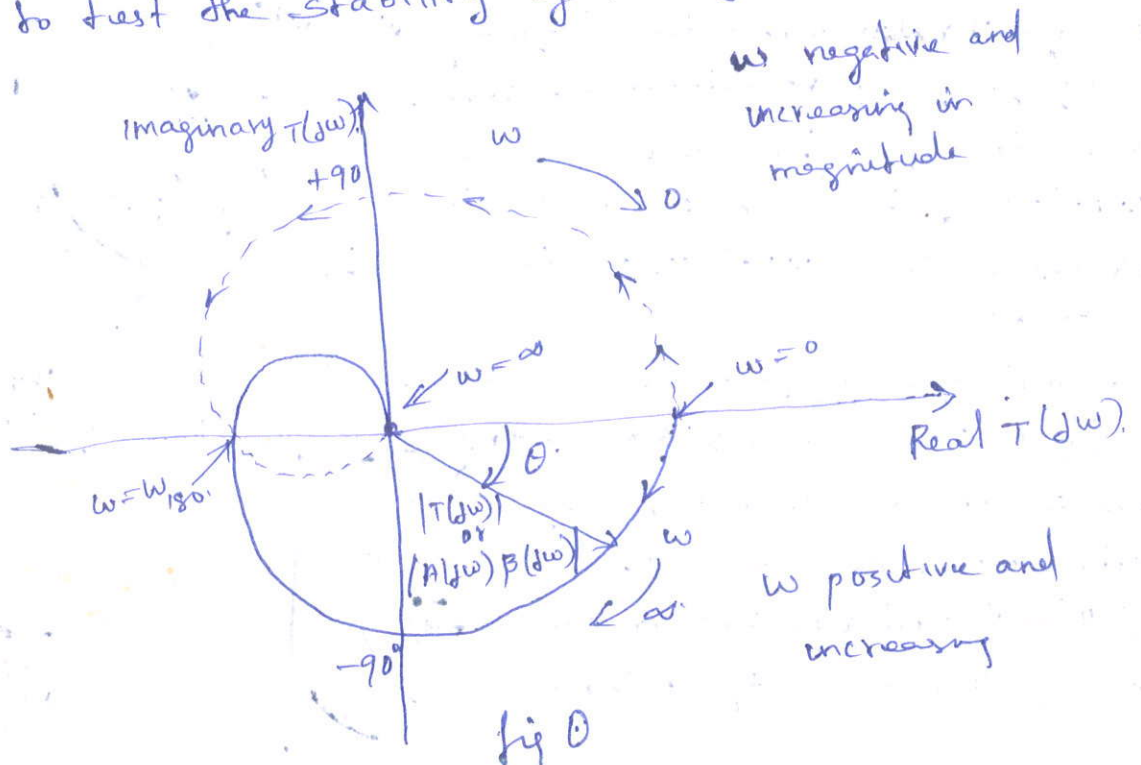 to test the stability
w negative and
increasing in
magnitude
Imaginary T(jw)
w
+90
0
w=∞
w=0
Real T(jw).
θ.
w=w180.
|T(jw)|
or
|A(jw) β(jw)|
w
∞.
w positive and
increasing
-90°
fig ①